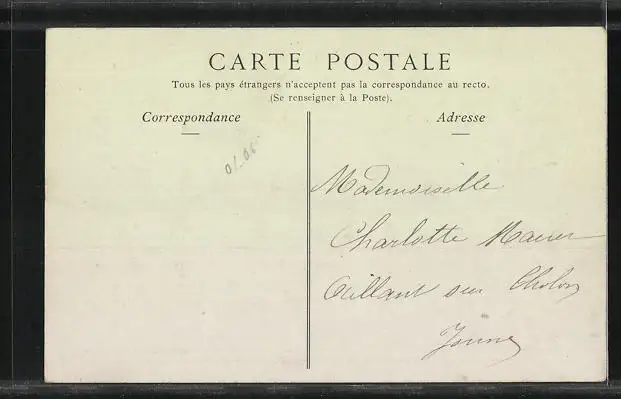 CARTE POSTALE
Tous les pays étrangers n'acceptent pas la correspondance au recto.
(Se renseigner à la Poste).
Correspondance
Adresse
Mademoiselle
Charlotte
sur
Yonne